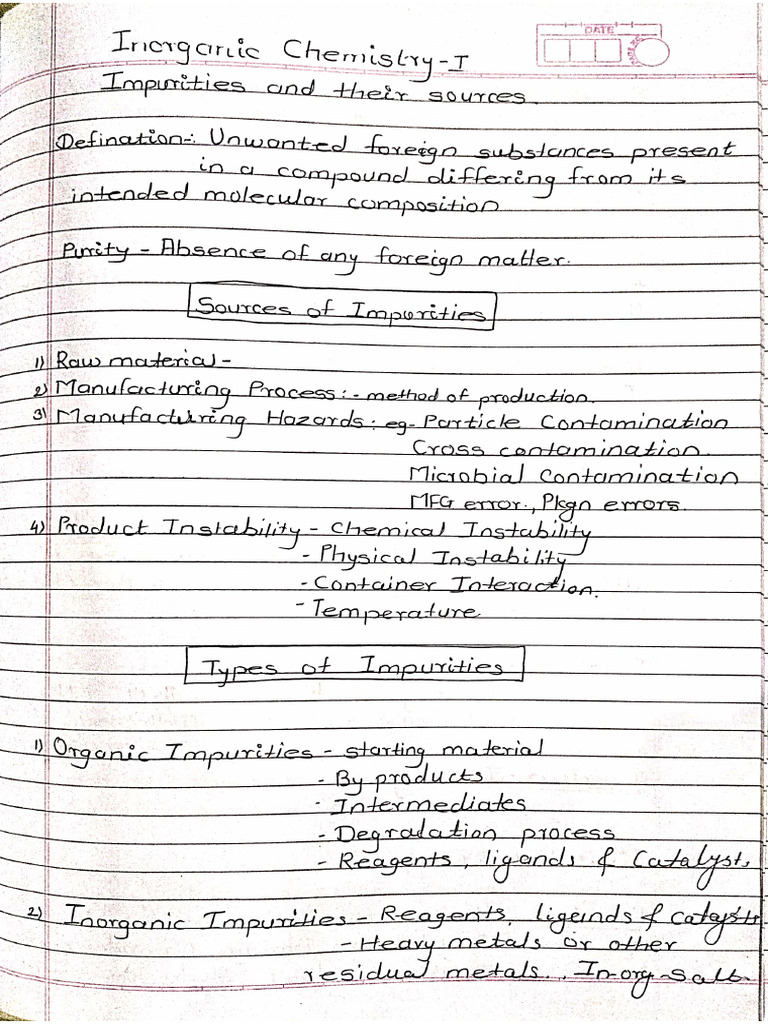 DATE
Inorganic Chemistry-I
Impurities and their sources.
Defination-: Unwanted foreign substances present
in a compound differing from its
intended molecular composition
Purity - Absence of any foreign matter.
Sources of Impurities
1) Raw material -
2) Manufacturing Process:- method of production.
3) Manufacturing Hazards: eg- Particle Contamination
Cross contamination.
Microbial Contamination
MFG error., Pkgn errors.
4) Product Instability - Chemical Instability
- Physical Instability
- Container Interaction.
- Temperature
Types of Impurities
1) Organic Impurities - starting material
- By products
- Intermediates
- Degradation process
- Reagents, ligands & Catalysts
2) Inorganic Impurities - Reagents, ligands & catalysts
- Heavy metals or other
residual metals., In-org-salt.